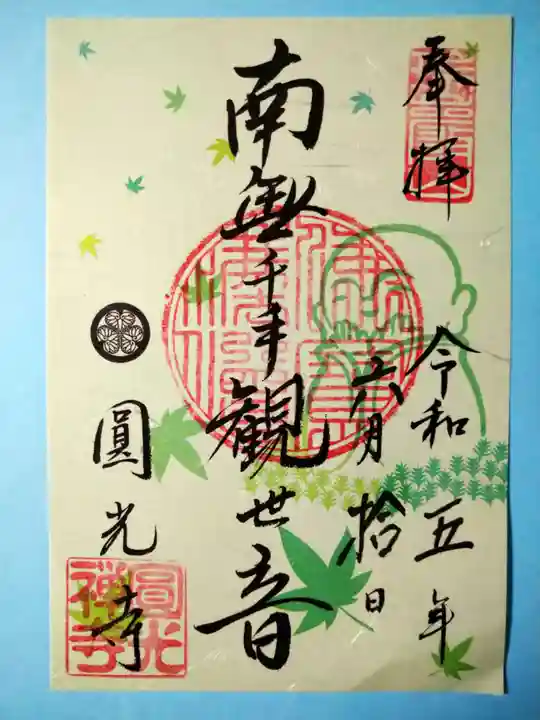 奉拝
令和五年
八月拾日
南無千手観世音
圓光寺
圓光禅寺